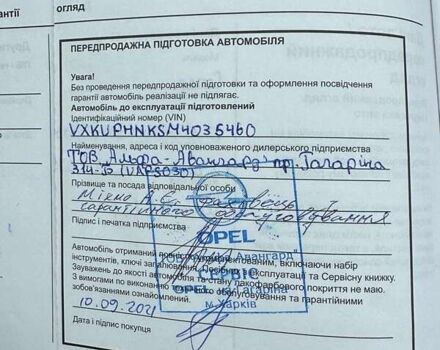 арантії
ОГЛЯД
ПЕРЕДПРОДАЖНА ПІДГОТОВКА АВТОМОБІЛЯ
Увага!
Без проведення передпродажної підготовки та оформлення посвідчення
гарантії автомобіль реалізації не підлягає.
Автомобіль до експлуатації підготовлений
Ідентифікаційний номер (VIN)
VXKUPHNKSM4035460
Найменування, адреса і код уповноваженого дилерського підприємства
ТОВ "Альфа-Авангард" пр. Гагаріна
314-Б (UAPS030)
Прізвище та посада відповідальної особи
фахівець
гарантійного обслуговування
Підпис і печатка підприємства
OPEL
Автомобіль отриманий укомплектованим, включаючи набір
інструментів, ключі запалювання, експлуатації та Сервісну книжку.
Зауважень до якості автомобіля та стану лакофарбового покриття не маю.
З вимогами по виконанню обслуговування та гарантійними
зобов'язаннями ознайомлений.
Авангард"
СЕРВІС
OPEL на Гагаріна
м.Харків
10.09.2021
Дата і підпис покупця